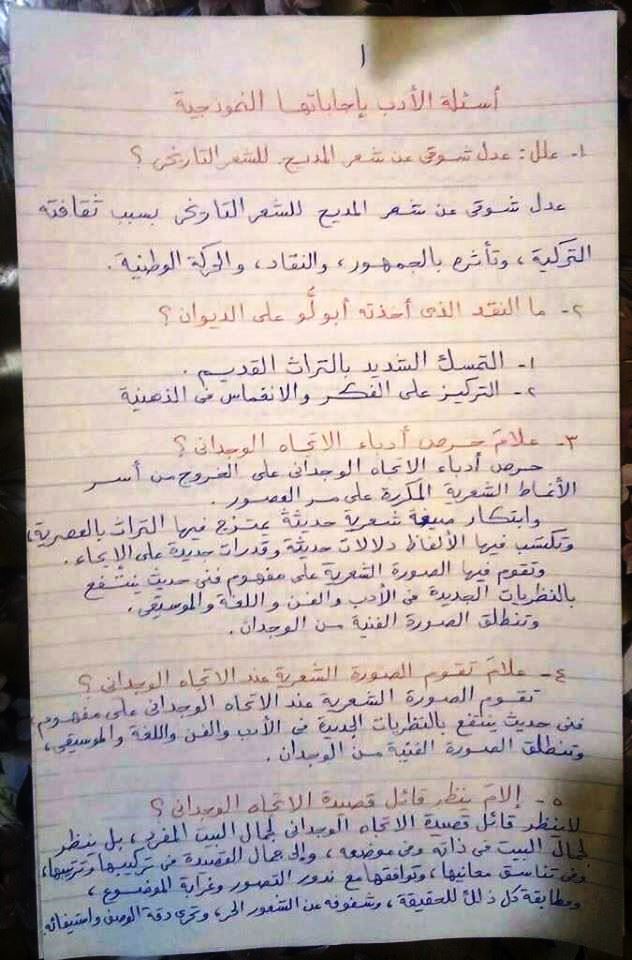 ١
أسئلة الأدب بإجاباتها النموذجية
١- علل: عدل شوقى عن شعر المديح للشعر التاريخى ؟
عدل شوقى عن شعر المديح للشعر التاريخى بسبب ثقافته
التركية ، وتأثره بالجمهور ، والنقاد ، والحركة الوطنية .
٢- ما النقد الذى أخذته أبولُّو على الديوان ؟
١- التمسك الشديد بالتراث القديم .
٢- التركيز على الفكر والانغماس فى الذهنية
٣- علامَ حرص أدباء الاتجاه الوجدانى ؟
حرص أدباء الاتجاه الوجدانى على الخروج من أسر
الأنماط الشعرية المكررة على مر العصور .
وابتكار صيغة شعرية حديثة يمتزج فيها التراث بالعصرية ،
وتكتسب فيها الألفاظ دلالات حديثة وقدرات جديدة على الإيحاء .
وتقوم فيها الصورة الشعرية على مفهوم فنى حديث ينتفع
بالنظريات الجديدة فى الأدب والفن واللغة والموسيقى .
وتنطلق الصورة الفنية من الوجدان .
٤- علامَ تقوم الصورة الشعرية عند الاتجاه الوجدانى ؟
تقوم الصورة الشعرية عند الاتجاه الوجدانى على مفهوم
فنى حديث ينتفع بالنظريات الجديدة فى الأدب والفن واللغة والموسيقى ،
وتنطلق الصورة الفنية من الوجدان .
٥- إلامَ ينظر قائل قصيدة الاتجاه الوجدانى ؟
لاينظر قائل قصيدة الاتجاه الوجدانى لجمال البيت المفرد ، بل ينظر
لجمال البيت فى ذاته وفى موضعه ، وإلى جمال القصيدة فى تركيبها وترتيبها ،
وفى تناسق معانيها ، وتوافقها مع ندور التصور وغرابة الموضوع ،
ومطابقة كل ذلك للحقيقة ، وشفوفه عن الشعور الحر ، وتحرى دقة الوصف واستيفائه